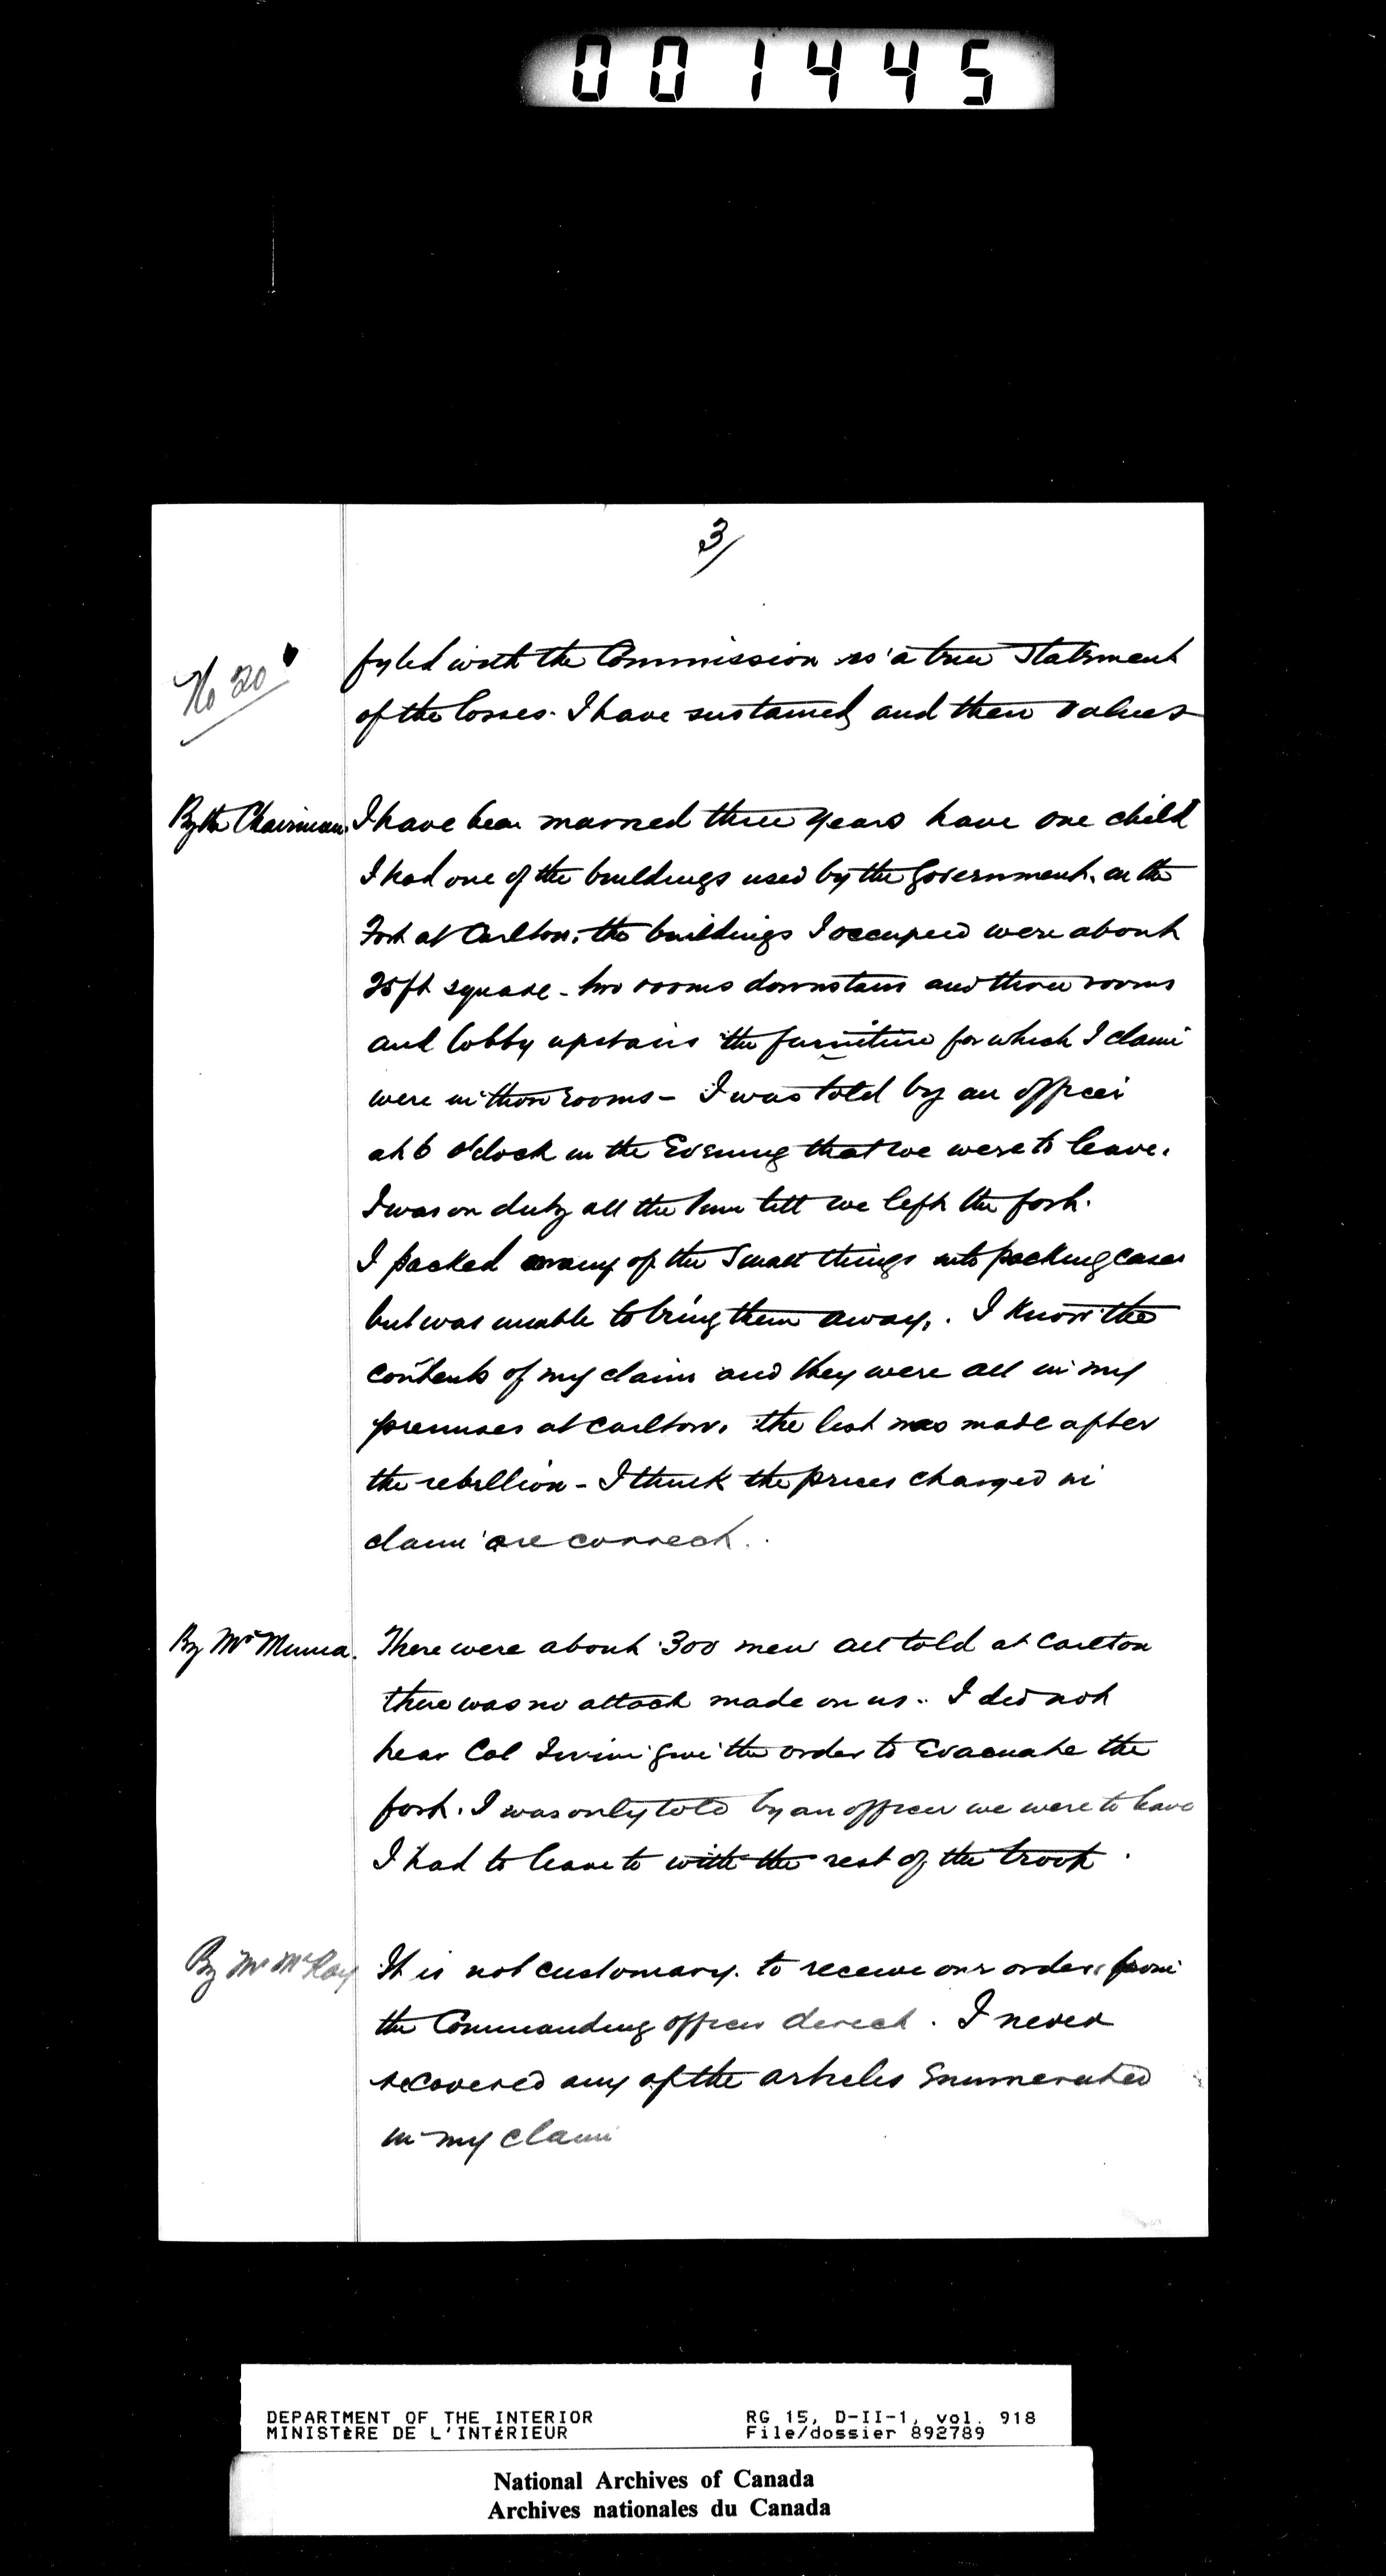 001445
3/
No 20
fyled with the Commission is a true statement
of the losses. I have sustained and their values
By the Chairman. I have been married three years have one child
I had one of the buildings used by the Government. in the
Fort at Carlton. the buildings I occupied were about
25 ft square - two rooms downstairs and three rooms
and lobby upstairs the furniture for which I claim
were in those rooms - I was told by an officer
at 6 o'clock in the Evening that we were to leave.
I was on duty all the time till we left the fort.
I packed many of the small things into packing cases
but was unable to bring them away. I know the
contents of my claim and they were all in my
premises at Carlton. the list was made after
the rebellion - I think the prices charged in
claim are correct.
By Mr Muma. There were about 300 men all told at Carlton
there was no attack made on us. I did not
hear Col Irvine give the order to Evacuate the
fort. I was only told by an officer we were to leave
I had to leave to with the rest of the troop.
By Mr McKay It is not customary. to receive our orders from
the Commanding officer direct. I never
recovered any of the articles Enumerated
in my claim
DEPARTMENT OF THE INTERIOR RG 15, D-II-1, vol. 918
MINISTÈRE DE L'INTÉRIEUR File/dossier 892789
National Archives of Canada
Archives nationales du Canada